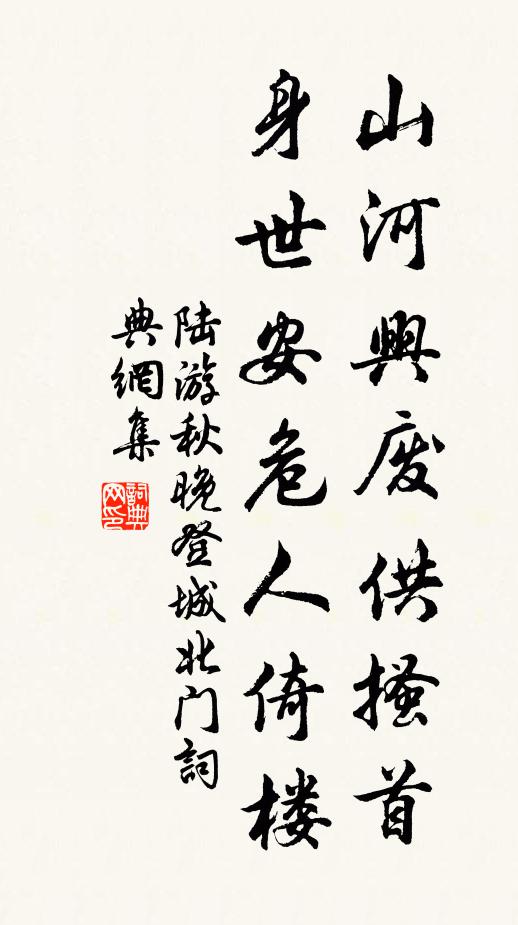 山河興废供搔首
身世安危人倚楼
陆游秋晚登城北门詞
典網集
詞典
网印